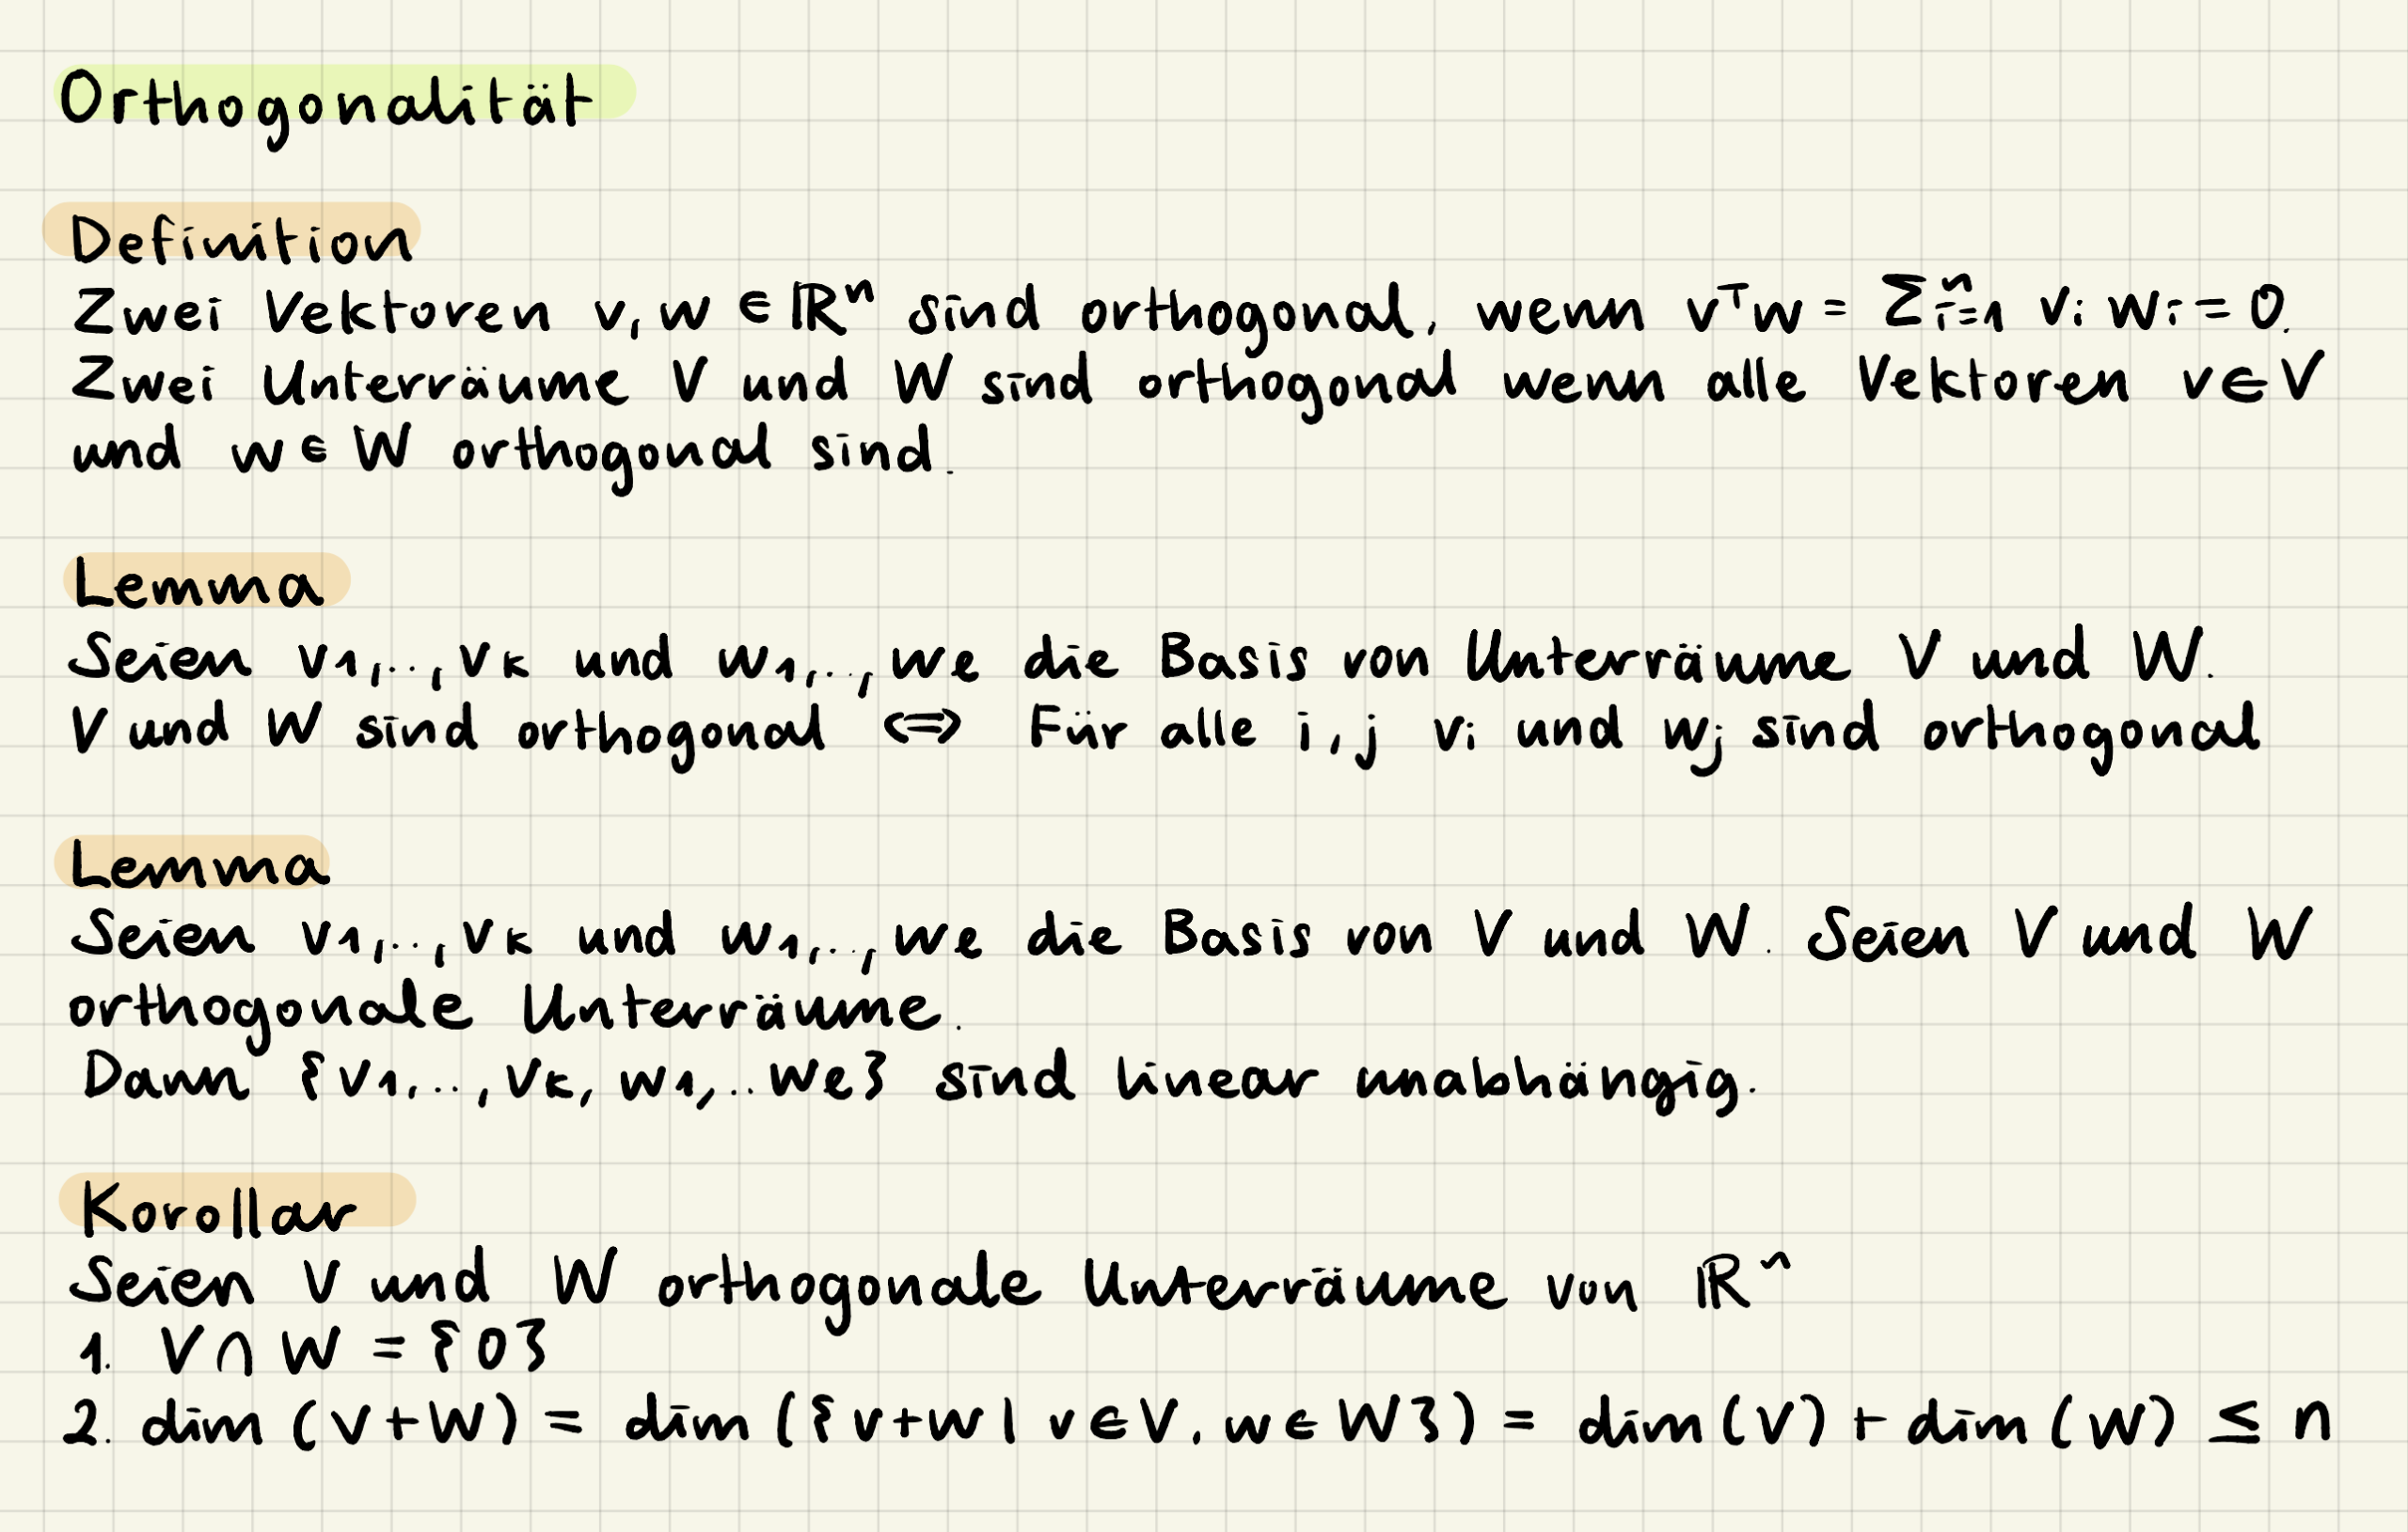 Orthogonalität
Definition
Zwei Vektoren v, w ∈ ℝⁿ sind orthogonal, wenn vᵀw = Σⁿᵢ₌₁ vᵢ wᵢ = 0.
Zwei Unterräume V und W sind orthogonal wenn alle Vektoren v∈V
und w ∈ W orthogonal sind.
Lemma
Seien v₁,..,vₖ und w₁,..,wₗ die Basis von Unterräume V und W.
V und W sind orthogonal ⟺ Für alle i, j vᵢ und wⱼ sind orthogonal
Lemma
Seien v₁,..,vₖ und w₁,..,wₗ die Basis von V und W. Seien V und W
orthogonale Unterräume.
Dann {v₁,..,vₖ, w₁,..wₗ} sind linear unabhängig.
Korollar
Seien V und W orthogonale Unterräume von ℝⁿ
1. V∩W = {0}
2. dim (V+W) = dim ({v+w | v∈V, w∈W}) = dim(V) + dim(W) ≤ n